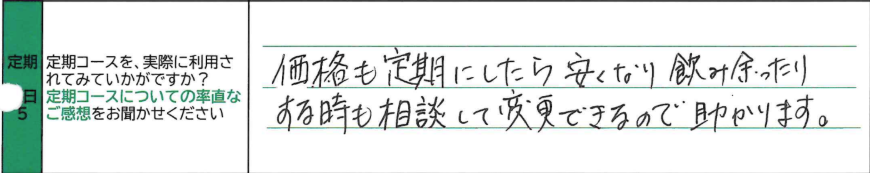 定期
日
5
定期コースを、実際に利用さ
れてみていかがですか？
定期コースについての率直な
ご感想をお聞かせください
価格も定期にしたら安くなり飲み余ったり
する時も相談して変更できるので助かります。